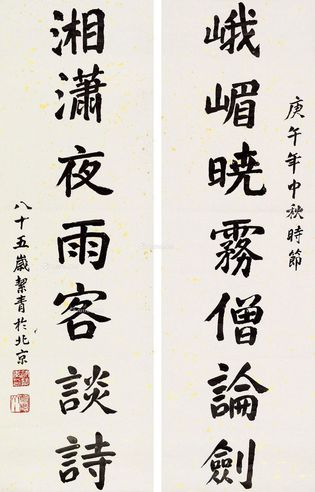 庚午年中秋時節
峨嵋曉霧僧論劍
湘瀟夜雨客談詩
八十五歲絜青於北京